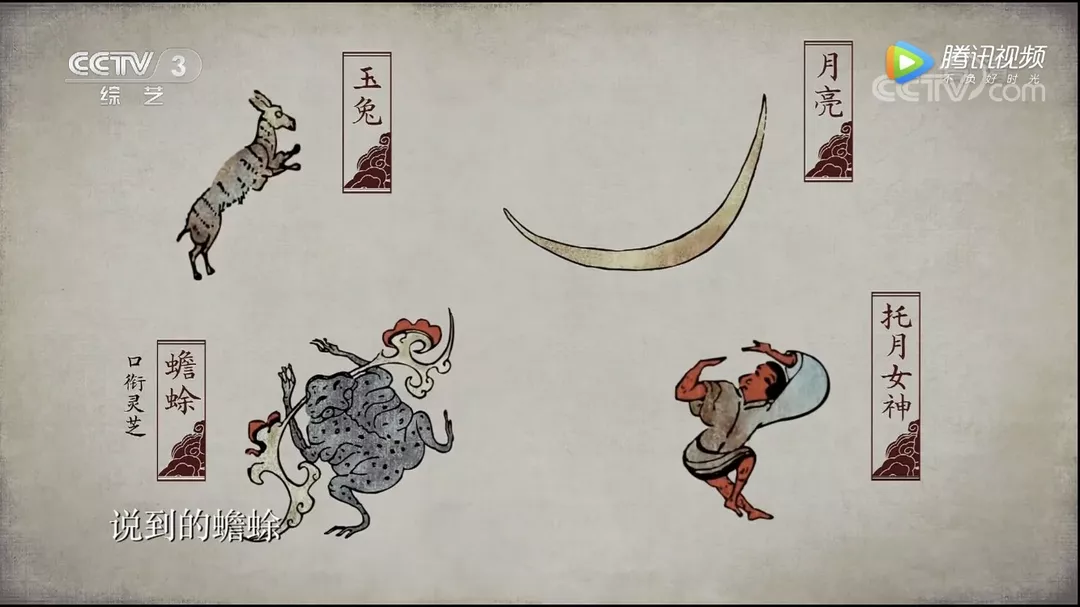 CCTV 3
综艺
玉兔
月亮
腾讯视频
不负好时光
CCTV.com
托月女神
蟾蜍
口衔灵芝
说到的蟾蜍